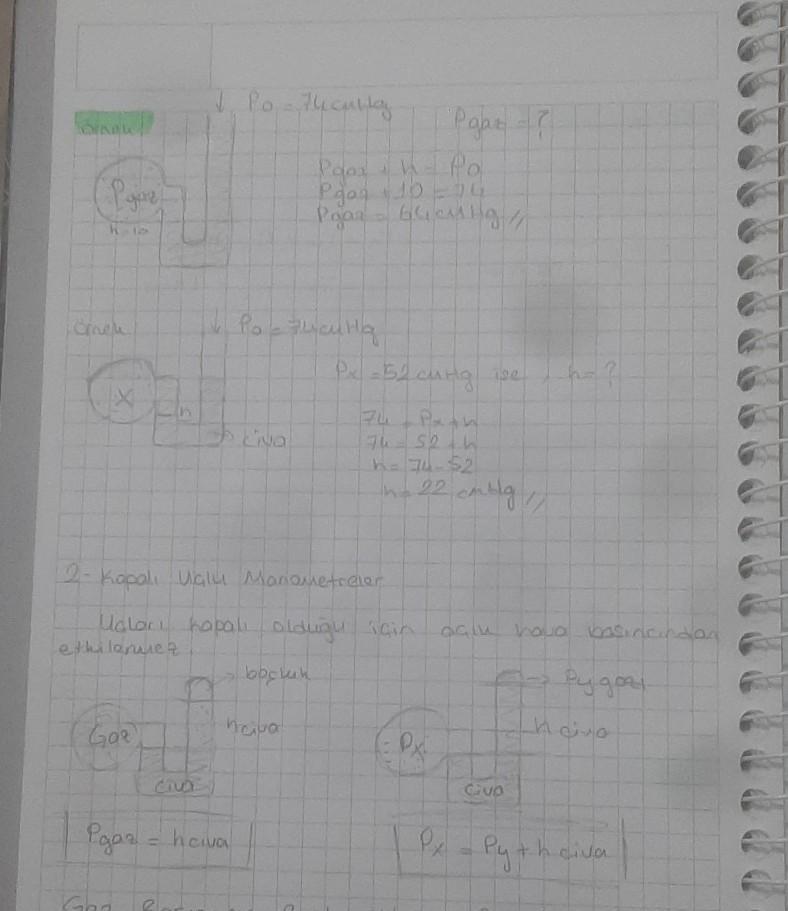 ↓ P0 = 74 cmHg
Örnek
Pgaz = ?
Pgaz
h=10
Pgaz + h = P0
Pgaz + 10 = 74
Pgaz = 64 cmHg //
Örnek
↓ P0 = 74 cmHg
X
h
→ civa
Px = 52 cmHg ise, h = ?
74 = Px + h
74 = 52 + h
h = 74 - 52
h = 22 cmHg //
2- Kapalı Uçlu Manometreler
Uçları kapalı olduğu için açık hava basıncından
etkilenmez
→ boşluk
Gaz
h civa
civa
→ Py gazı
Px
h civa
civa
Pgaz = h civa
Px = Py + h civa